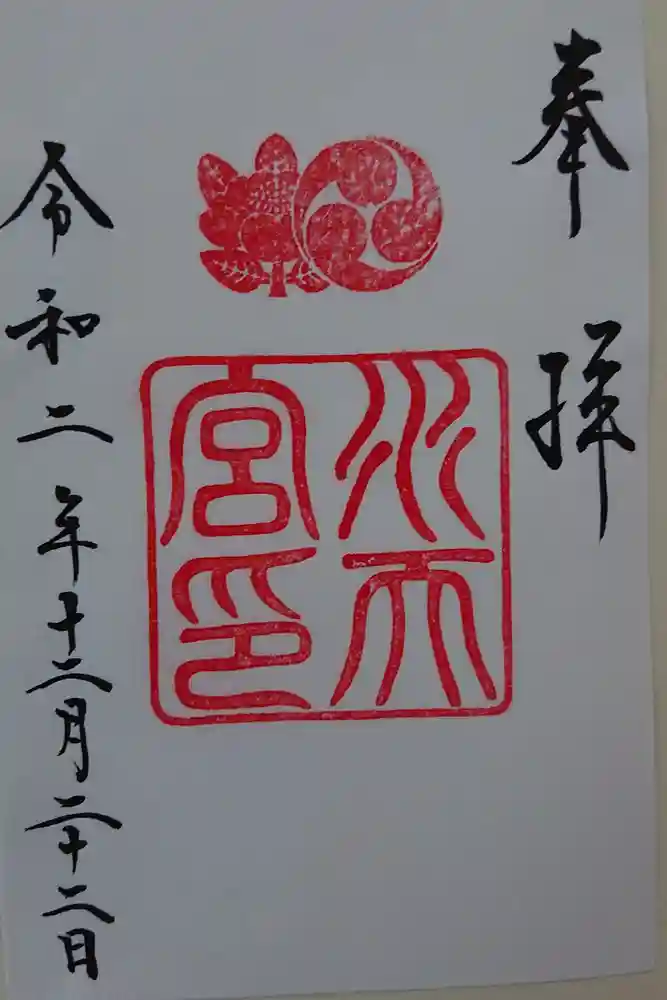 奉拝
水天
宮印
令和二年十二月二十二日